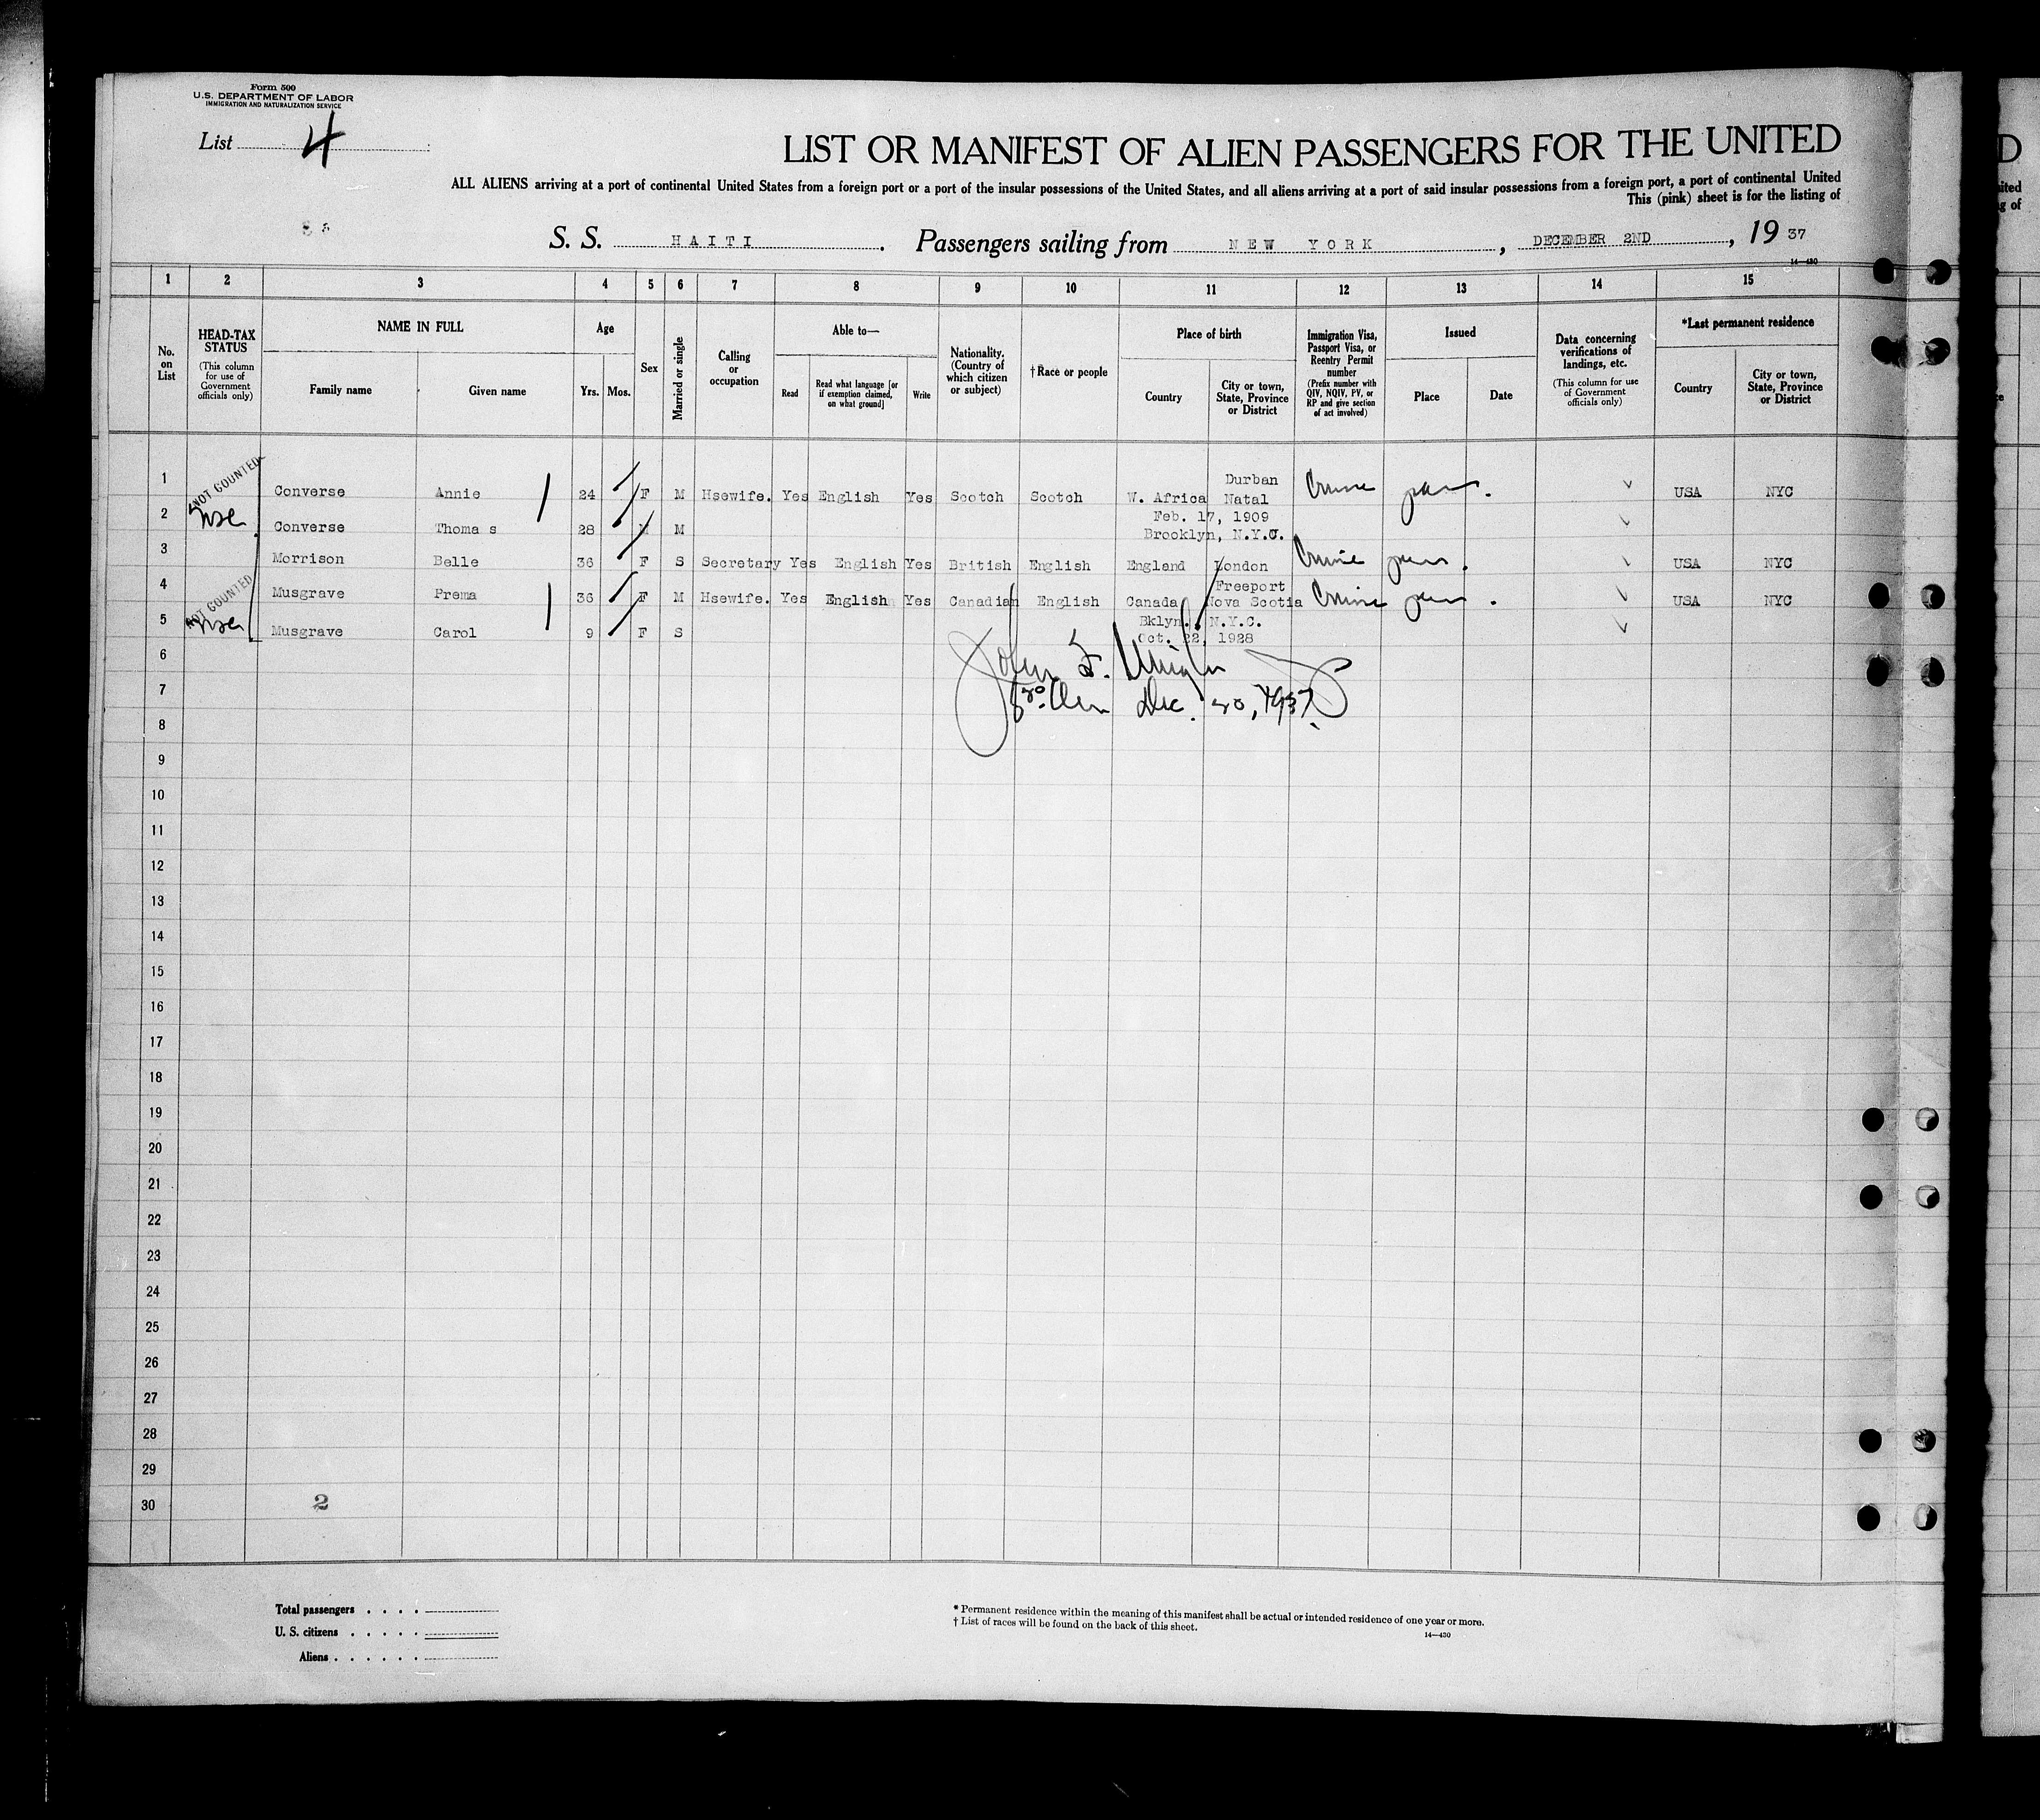 Form 500
U.S. DEPARTMENT OF LABOR
IMMIGRATION AND NATURALIZATION SERVICE
List 4
LIST OR MANIFEST OF ALIEN PASSENGERS FOR THE UNITED
ALL ALIENS arriving at a port of continental United States from a foreign port or a port of the insular possessions of the United States, and all aliens arriving at a port of said insular possessions from a foreign port, a port of continental United
This (pink) sheet is for the listing of
S. S. HAITI . Passengers sailing from NEW YORK , DECEMBER 2ND , 19 37
14—430
1 2 3 4 5 6 7 8 9 10 11 12 13 14 15
No. on List
HEAD-TAX STATUS
(This column for use of Government officials only)
NAME IN FULL
Family name
Given name
Age
Yrs. Mos.
Sex
Married or single
Calling or occupation
Able to—
Read
Read what language [or if exemption claimed, on what ground]
Write
Nationality. (Country of which citizen or subject)
† Race or people
Place of birth
Country
City or town, State, Province or District
Immigration Visa, Passport Visa, or Reentry Permit number
(Prefix number with QIV, NQIV, PV, or RP and give section of act involved)
Issued
Place
Date
Data concerning verifications of landings, etc.
(This column for use of Government officials only)
*Last permanent residence
Country
City or town, State, Province or District
1 NOT COUNTED Converse Annie 24 F M Hsewife. Yes English Yes Scotch Scotch W. Africa Durban Natal Cruise USA NYC
2 Converse Thoma s 28 M Feb. 17, 1909 Brooklyn, N.Y.C.
3 Morrison Belle 36 F S Secretary Yes English Yes British English England London Cruise USA NYC
4 NOT COUNTED Musgrave Prema 36 F M Hsewife. Yes English Yes Canadian English Canada Freeport Nova Scotia Cruise USA NYC
5 Musgrave Carol 9 F S Bklyn. N.Y.C. Oct. 22, 1928
6
John F.
7
Dec. 20, 1937
8
9
10
11
12
13
14
15
16
17
18
19
20
21
22
23
24
25
26
27
28
29
30 2
Total passengers . . . .
U. S. citizens . . . . .
Aliens . . . . . .
* Permanent residence within the meaning of this manifest shall be actual or intended residence of one year or more.
† List of races will be found on the back of this sheet.
14—430